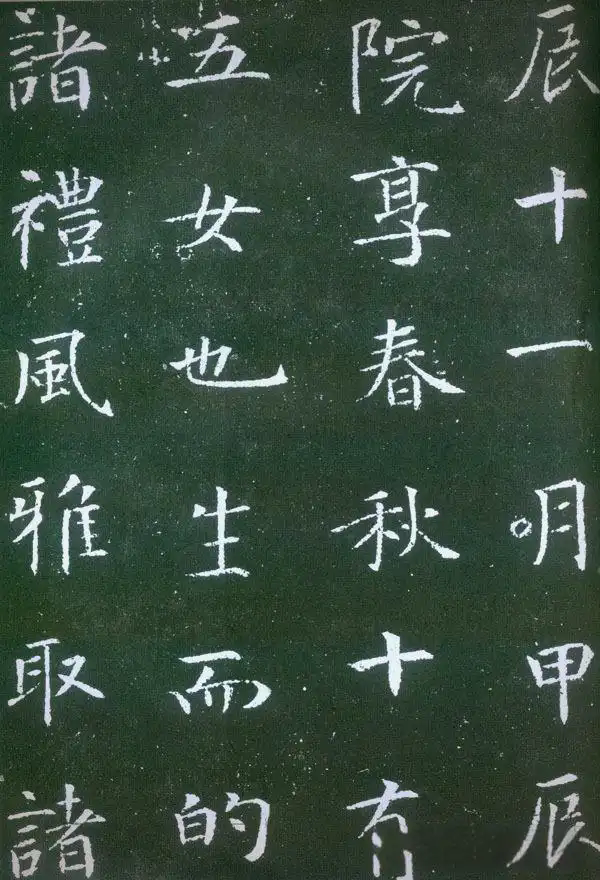 辰十一月甲辰
院享春秋十有
五女也生而的
諸禮風雅取諸